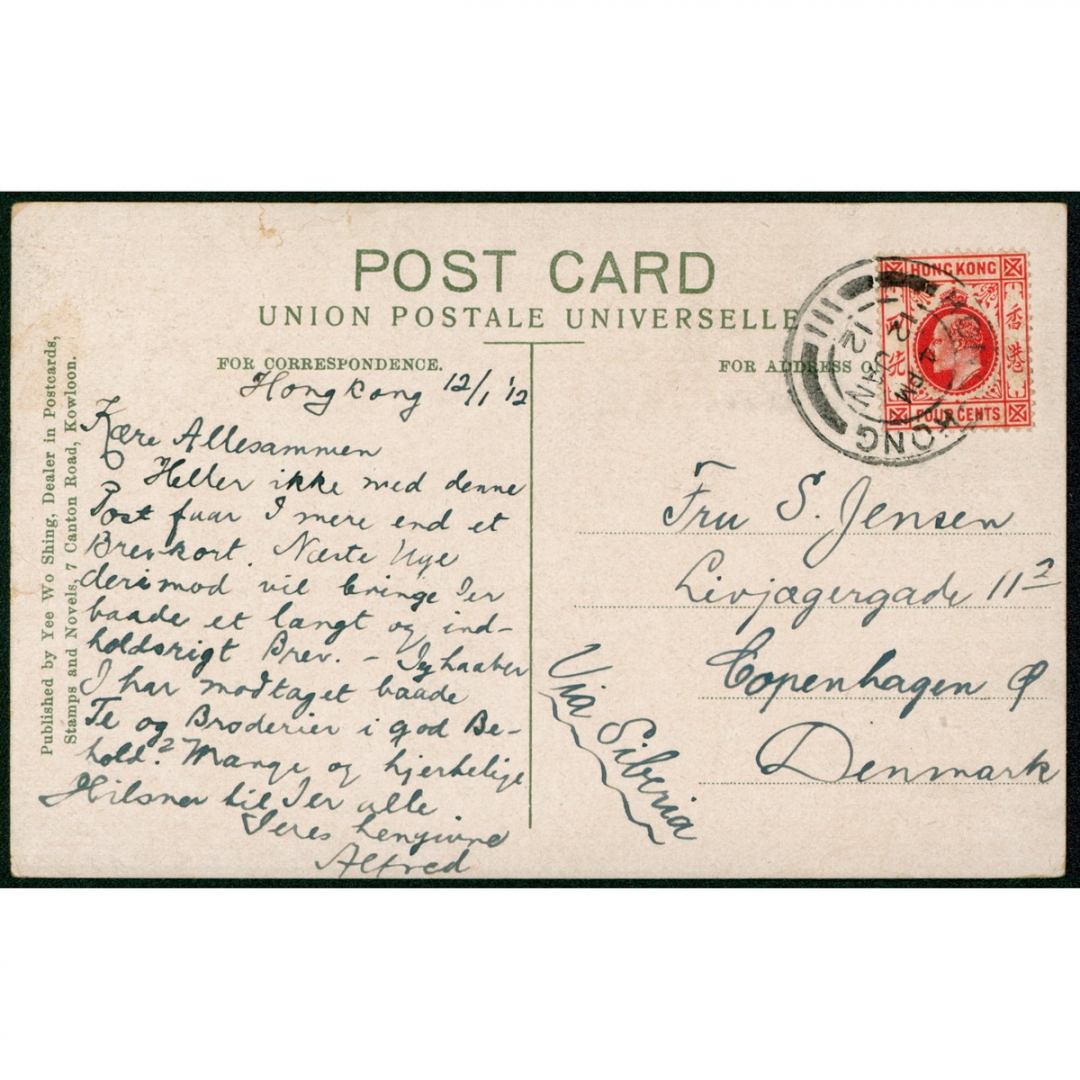 POST CARD
UNION POSTALE UNIVERSELLE
FOR CORRESPONDENCE.
FOR ADDRESS O
Published by Yee Wo Shing, Dealer in Postcards,
Stamps and Novels, 7 Canton Road, Kowloon.
Hongkong 12/1 '12
Kære Allesammen
Heller ikke med denne
Post faar I mere end et
Brevkort. Næste Uge
derimod vil bringe Jer
baade et langt og ind-
holdsrigt Brev. – Jeg haaber
I har modtaget baade
Te og Broderier i god Be-
hold? Mange og hjertelige
Hilsner til Jer alle
Jeres hengivne
Alfred
HONG KONG
香港
FOUR CENTS
KONG
4 PM
12 JAN
12
Fru S. Jensen
Livjægergade 11²
Copenhagen Ø
Denmark
Via Siberia